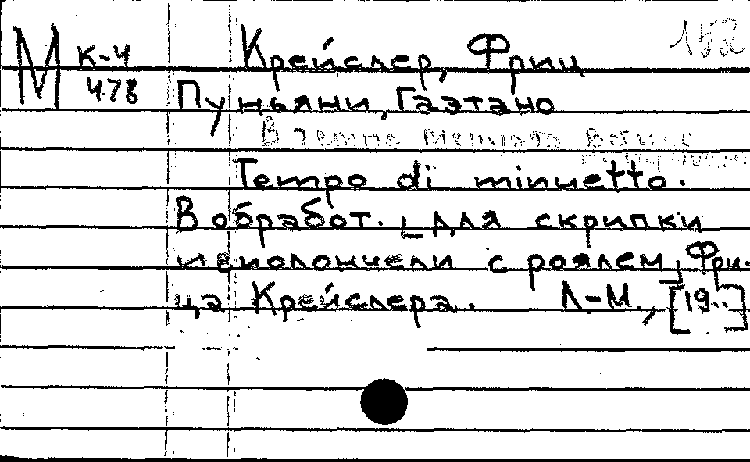 М К-4 Крейслер, Фриц 152
478 Пуньяни, Гаэтано
В темпе менуэта
Tempo di minuetto.
В обработ. [для скрипки
и виолончели с роялем] Фри-
ца Крейслера. Л-М., [19..]